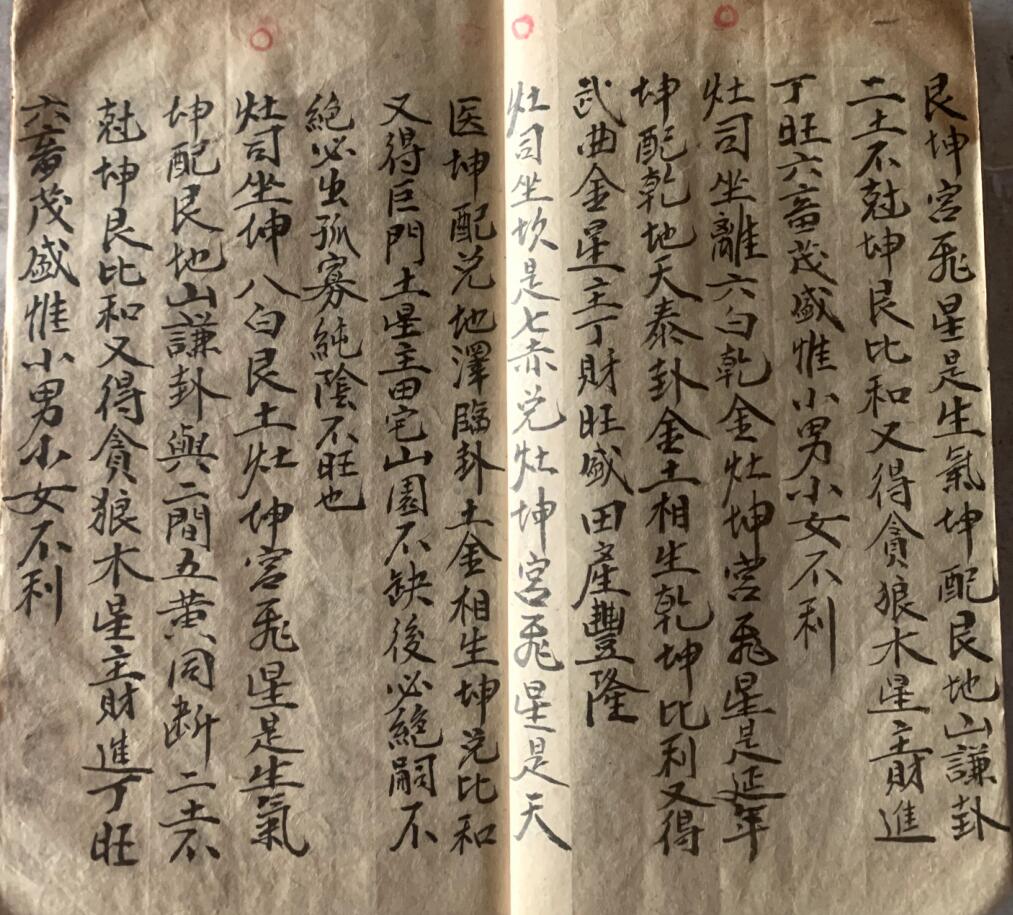 艮坤宮飛星是生氣坤配艮地山謙卦
二土不尅坤艮比和又得貪狼木星主財進
丁旺六畜茂盛惟小男小女不利
灶司坐離六白乾金灶坤宮飛星是延年
坤配乾地天泰卦金土相生乾坤比利又得
武曲金星主丁財旺盛田產豐隆
灶司坐坎是七赤兌灶坤宮飛星是天
医坤配兌地澤臨卦土金相生坤兌比和
又得巨門土星主田宅山園不缺後必絕嗣不
絕必出孤寡純陰不旺也
灶司坐坤八白艮土灶坤宮飛星是生氣
坤配艮地山謙卦與二間五黃同断二土不
尅坤艮比和又得貪狼木星主財進丁旺
六畜茂盛惟小男小女不利